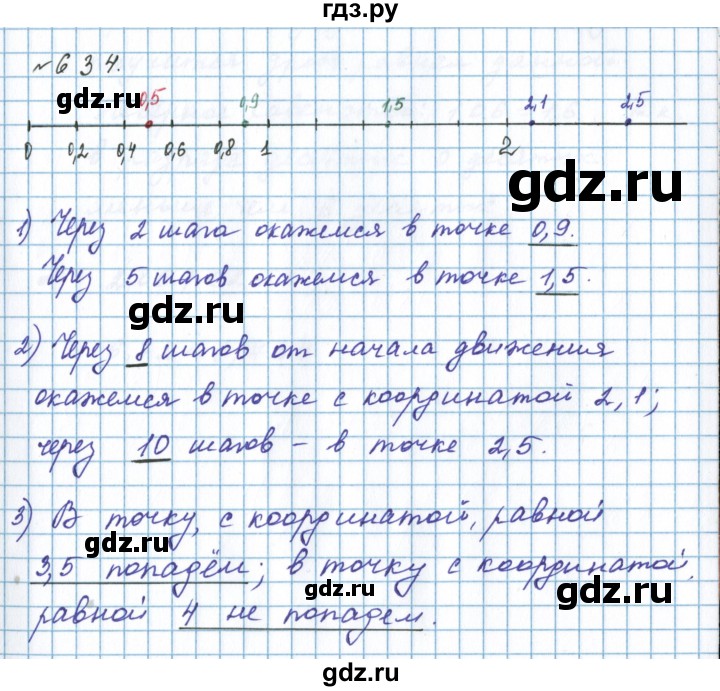 гдз.ру
№634.
gdz.ru
0,5 0,9 1,5 2,1 2,5
0 0,2 0,4 0,6 0,8 1 2
gdz.ru
1) Через 2 шага окажемся в точке 0,9.
Через 5 шагов окажемся в точке 1,5.
gdz.ru
2) Через 8 шагов от начала движения
gdz.ru
окажемся в точке с координатой 2,1;
через 10 шагов – в точке 2,5.
gdz.ru
3) В точку, с координатой, равной
gdz.ru
3,5 попадём; в точку с координатой,
gdz.ru
равной 4 не попадем.
gdz.ru